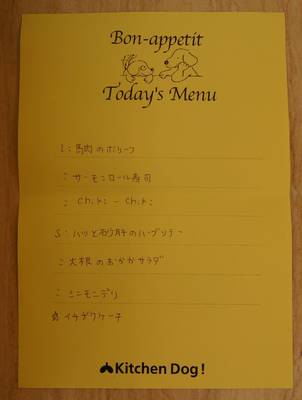 Bon-appetit
Today's Menu
1: 馬肉のポトーフ
: サーモンロール寿司
: Chiki-Chiki
S: ハツと砂肝のハーブソテー
: 大根のおかかサラダ
: ミニモニデリ
イチヂクケーキ
Kitchen Dog!